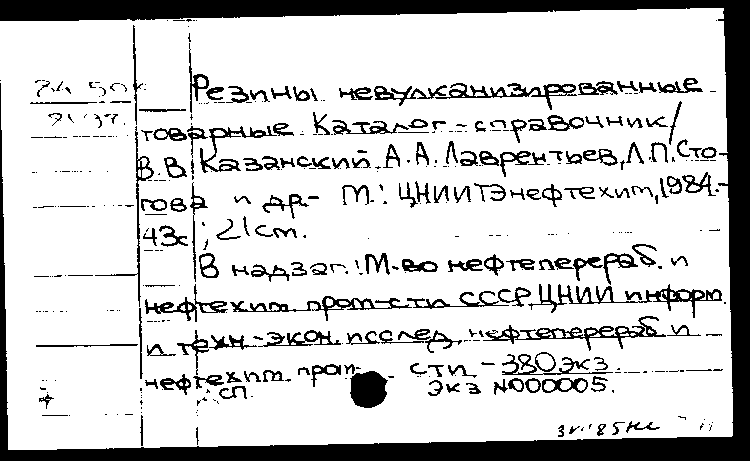 Резины невулканизированные
товарные. Каталог-справочник/
В.В. Казанский, А.А. Лаврентьев, Л.П. Сто-
гова и др.- М.: ЦНИИТЭнефтехим, 1984.-
43с.; 21 см.
В надзаг.: М-во нефтеперераб. и
нефтехим. пром-сти СССР, ЦНИИ информ.
и техн.-экон. исслед. нефтеперераб и
нефтехим. пром- сти - 380 экз.
сп. экз N000005.